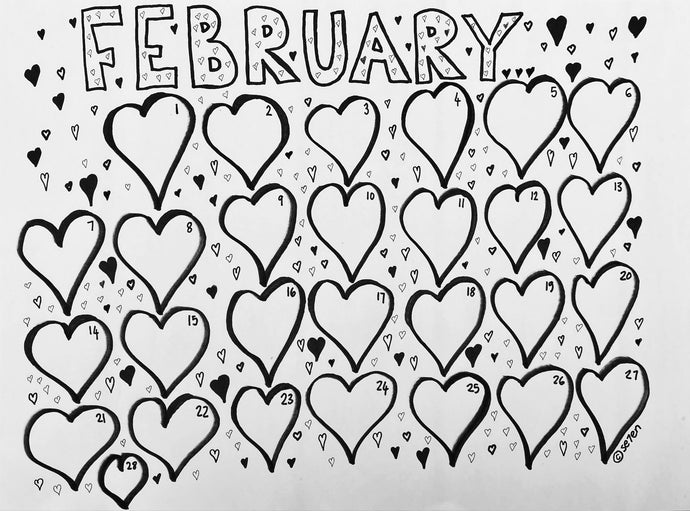 FEBRUARY...
1 2 3 4 5 6
7 8 9 10 11 12 13
14 15 16 17 18 19 20
21 22 23 24 25 26 27
28
©se7en